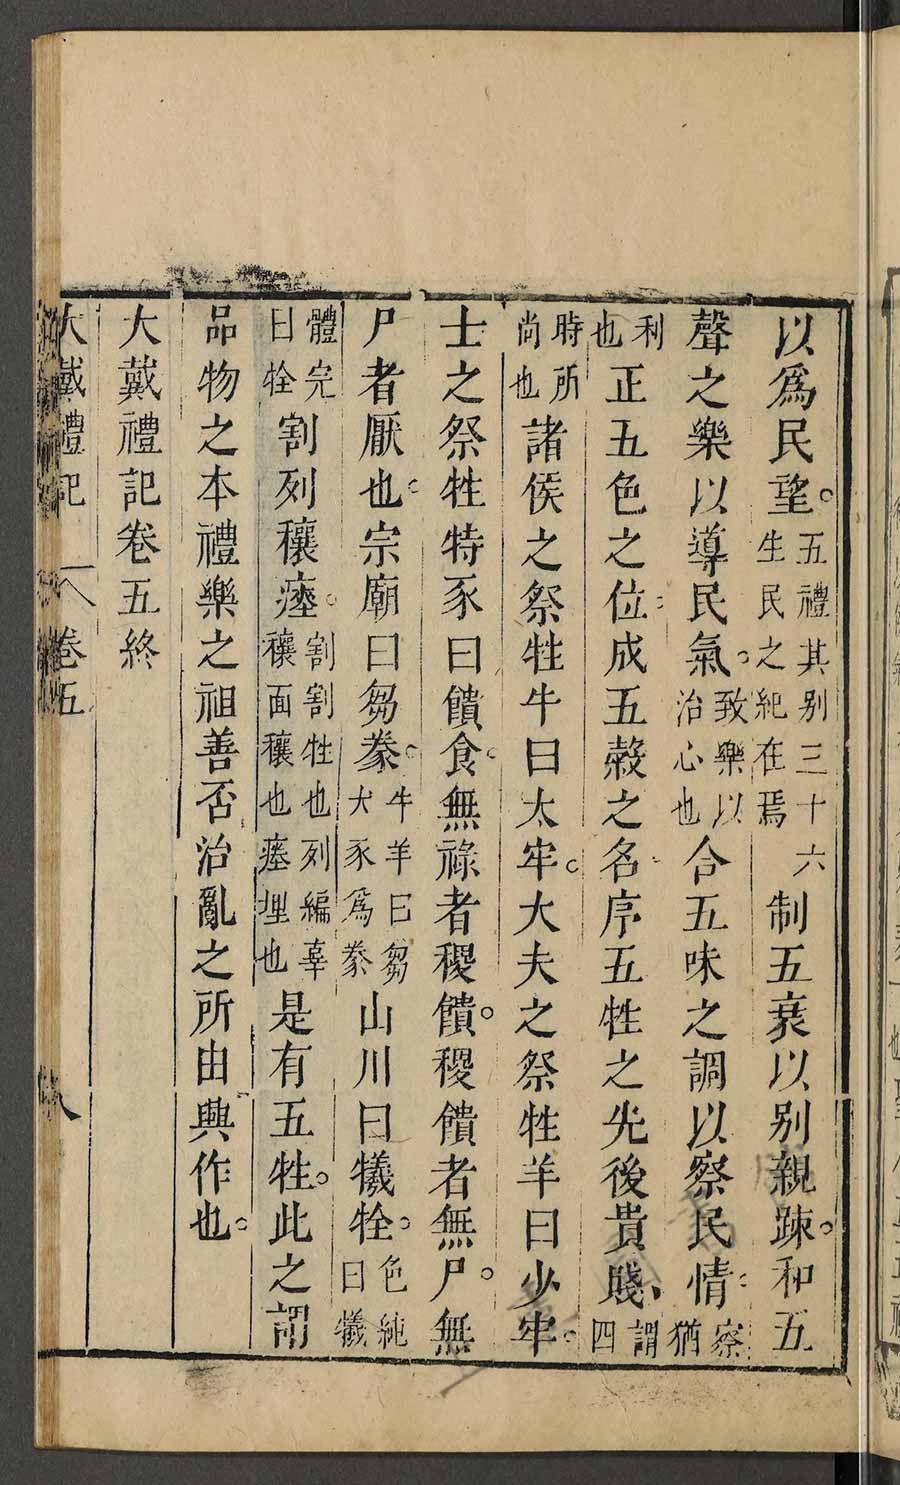 以爲民望。五禮其别三十六生民之紀在焉制五衰以别親踈。和五
聲之樂以導民氣。致樂以治心也合五味之調以察民情。察猶
利也正五色之位。成五穀之名。序五牲之先後貴賤、謂四
時所尚也諸侯之祭牲牛曰太牢。大夫之祭牲羊曰少牢。
士之祭牲特豕曰饋食。無祿者稷饋。稷饋者無尸。無
尸者厭也。宗廟曰芻豢。牛羊曰芻犬豕爲豢山川曰犧牷。色純曰犧
體完曰牷割列穰瘞。割割牲也列編辜穰面穰也瘞埋也是有五牲。此之謂
品物之本禮樂之祖善否治亂之所由興作也。
大戴禮記卷五終
大戴禮記 卷五 八